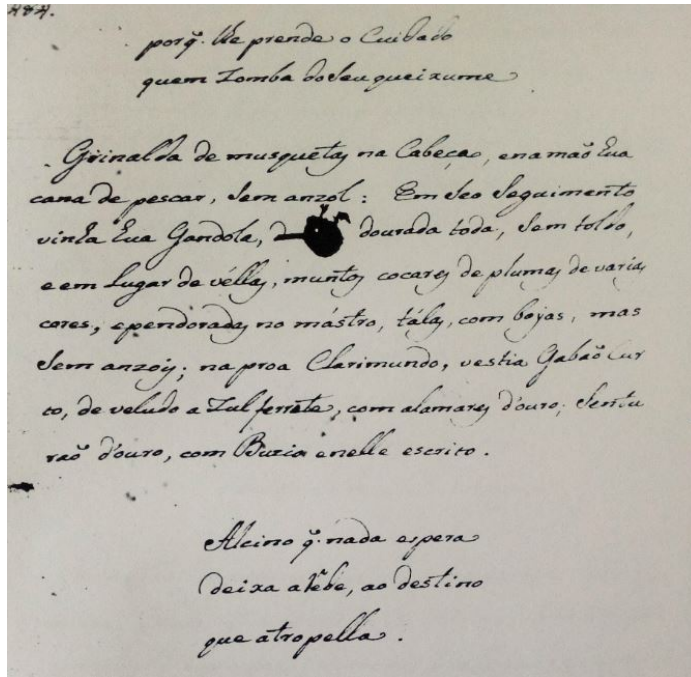 484.
porq̃. lhe prende o Cuidado
quem Zomba do Seu queixume
Grinalda de musquetas na Cabeça, ena maõ hua
cana de pescar, Sem anzol: Em Seo Seguimento
vinha hua Gondola, dourada toda, Sem toldo,
e em Lugar de véllas, muntos cocares de plumas de varias
cores, ependorados no mástro, tálas, com bojas, mas
Sem anzoys; na proa Clarimundo, vestia Gabaõ Cur
to, de veludo a Zul ferrete, com alamares d'ouro; Sentu
raõ d'ouro, com Buzia enelle escrito.
Alcino q̃. nada espera
deixa a ao destino
que atropella.